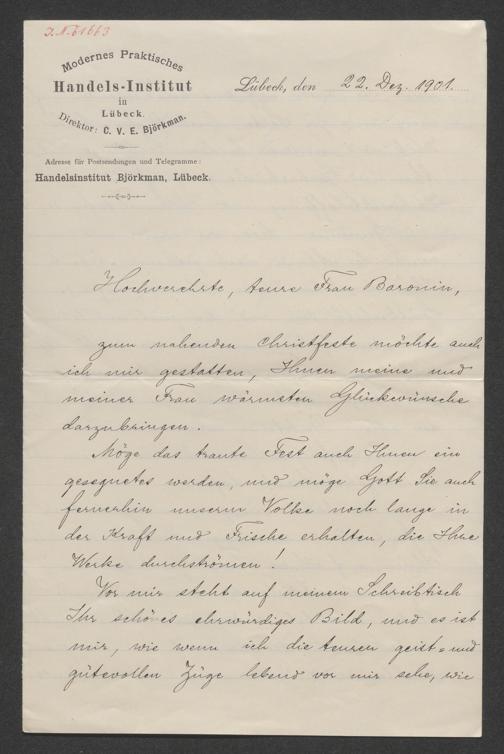 J.N. 61663
Modernes Praktisches
Handels-Institut
in
Lübeck.
Direktor: C. V. E. Björkman.
Adresse für Postsendungen und Telegramme:
Handelsinstitut Björkman, Lübeck.
Lübeck, den 22. Dez. 1901.
Hochverehrte, teure Frau Baronin,
zum nahenden Christfeste möchte auch
ich mir gestatten, Ihnen meine und
meiner Frau wärmsten Glückwünsche
darzubringen.
Möge das traute Fest auch Ihnen ein
gesegnetes werden, und möge Gott Sie auch
fernerhin unserm Volke noch lange in
der Kraft und Frische erhalten, die Ihre
Werke durchströmen!
Vor mir steht auf meinem Schreibtisch
Ihr schönes ehrwürdiges Bild, und es ist
mir, wie wenn ich die teuren geist= und
gütevollen Züge lebend vor mir sehe, wie